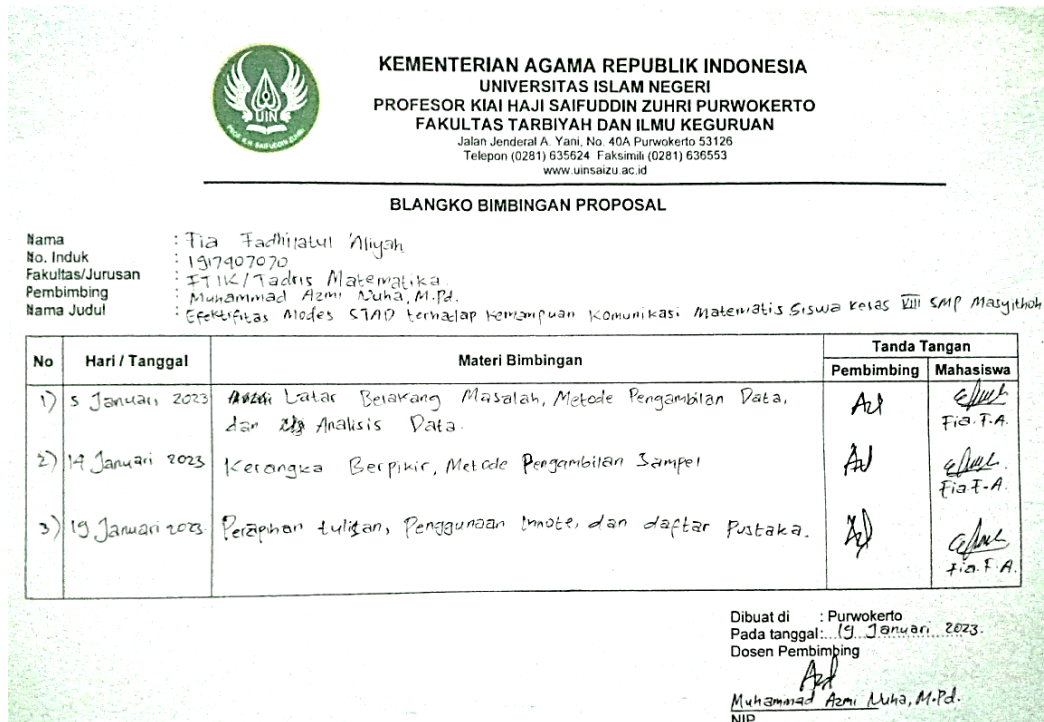 UIN
PROF. K.H. SAIFUDDIN ZUHRI
KEMENTERIAN AGAMA REPUBLIK INDONESIA
UNIVERSITAS ISLAM NEGERI
PROFESOR KIAI HAJI SAIFUDDIN ZUHRI PURWOKERTO
FAKULTAS TARBIYAH DAN ILMU KEGURUAN
Jalan Jenderal A. Yani, No. 40A Purwokerto 53126
Telepon (0281) 635624 Faksimili (0281) 636553
www.uinsaizu.ac.id
BLANGKO BIMBINGAN PROPOSAL
Nama : Fia Fadhilatul 'Aliyah
No. Induk : 1917407070
Fakultas/Jurusan : FTIK/Tadris Matematika
Pembimbing : Muhammad Azmi Nuha, M.Pd.
Nama Judul : Efektifitas Modes STAD terhadap Kemampuan Komunikasi Matematis Siswa Kelas VIII SMP Masyithoh
No Hari / Tanggal Materi Bimbingan Tanda Tangan
Pembimbing Mahasiswa
1) 5 Januari 2023 Latar Belakang Masalah, Metode Pengambilan Data,
dan Analisis Data.
Fia.F.A.
2) 14 Januari 2023 Kerangka Berpikir, Metode Pengambilan Sampel
Fia F.A.
3) 19 Januari 2023. Perapihan tulisan, Penggunaan Innote, dan daftar Pustaka.
Fia.F.A.
Dibuat di : Purwokerto
Pada tanggal: 19 Januari 2023.
Dosen Pembimbing
Muhammad Azmi Nuha, M.Pd.
NIP